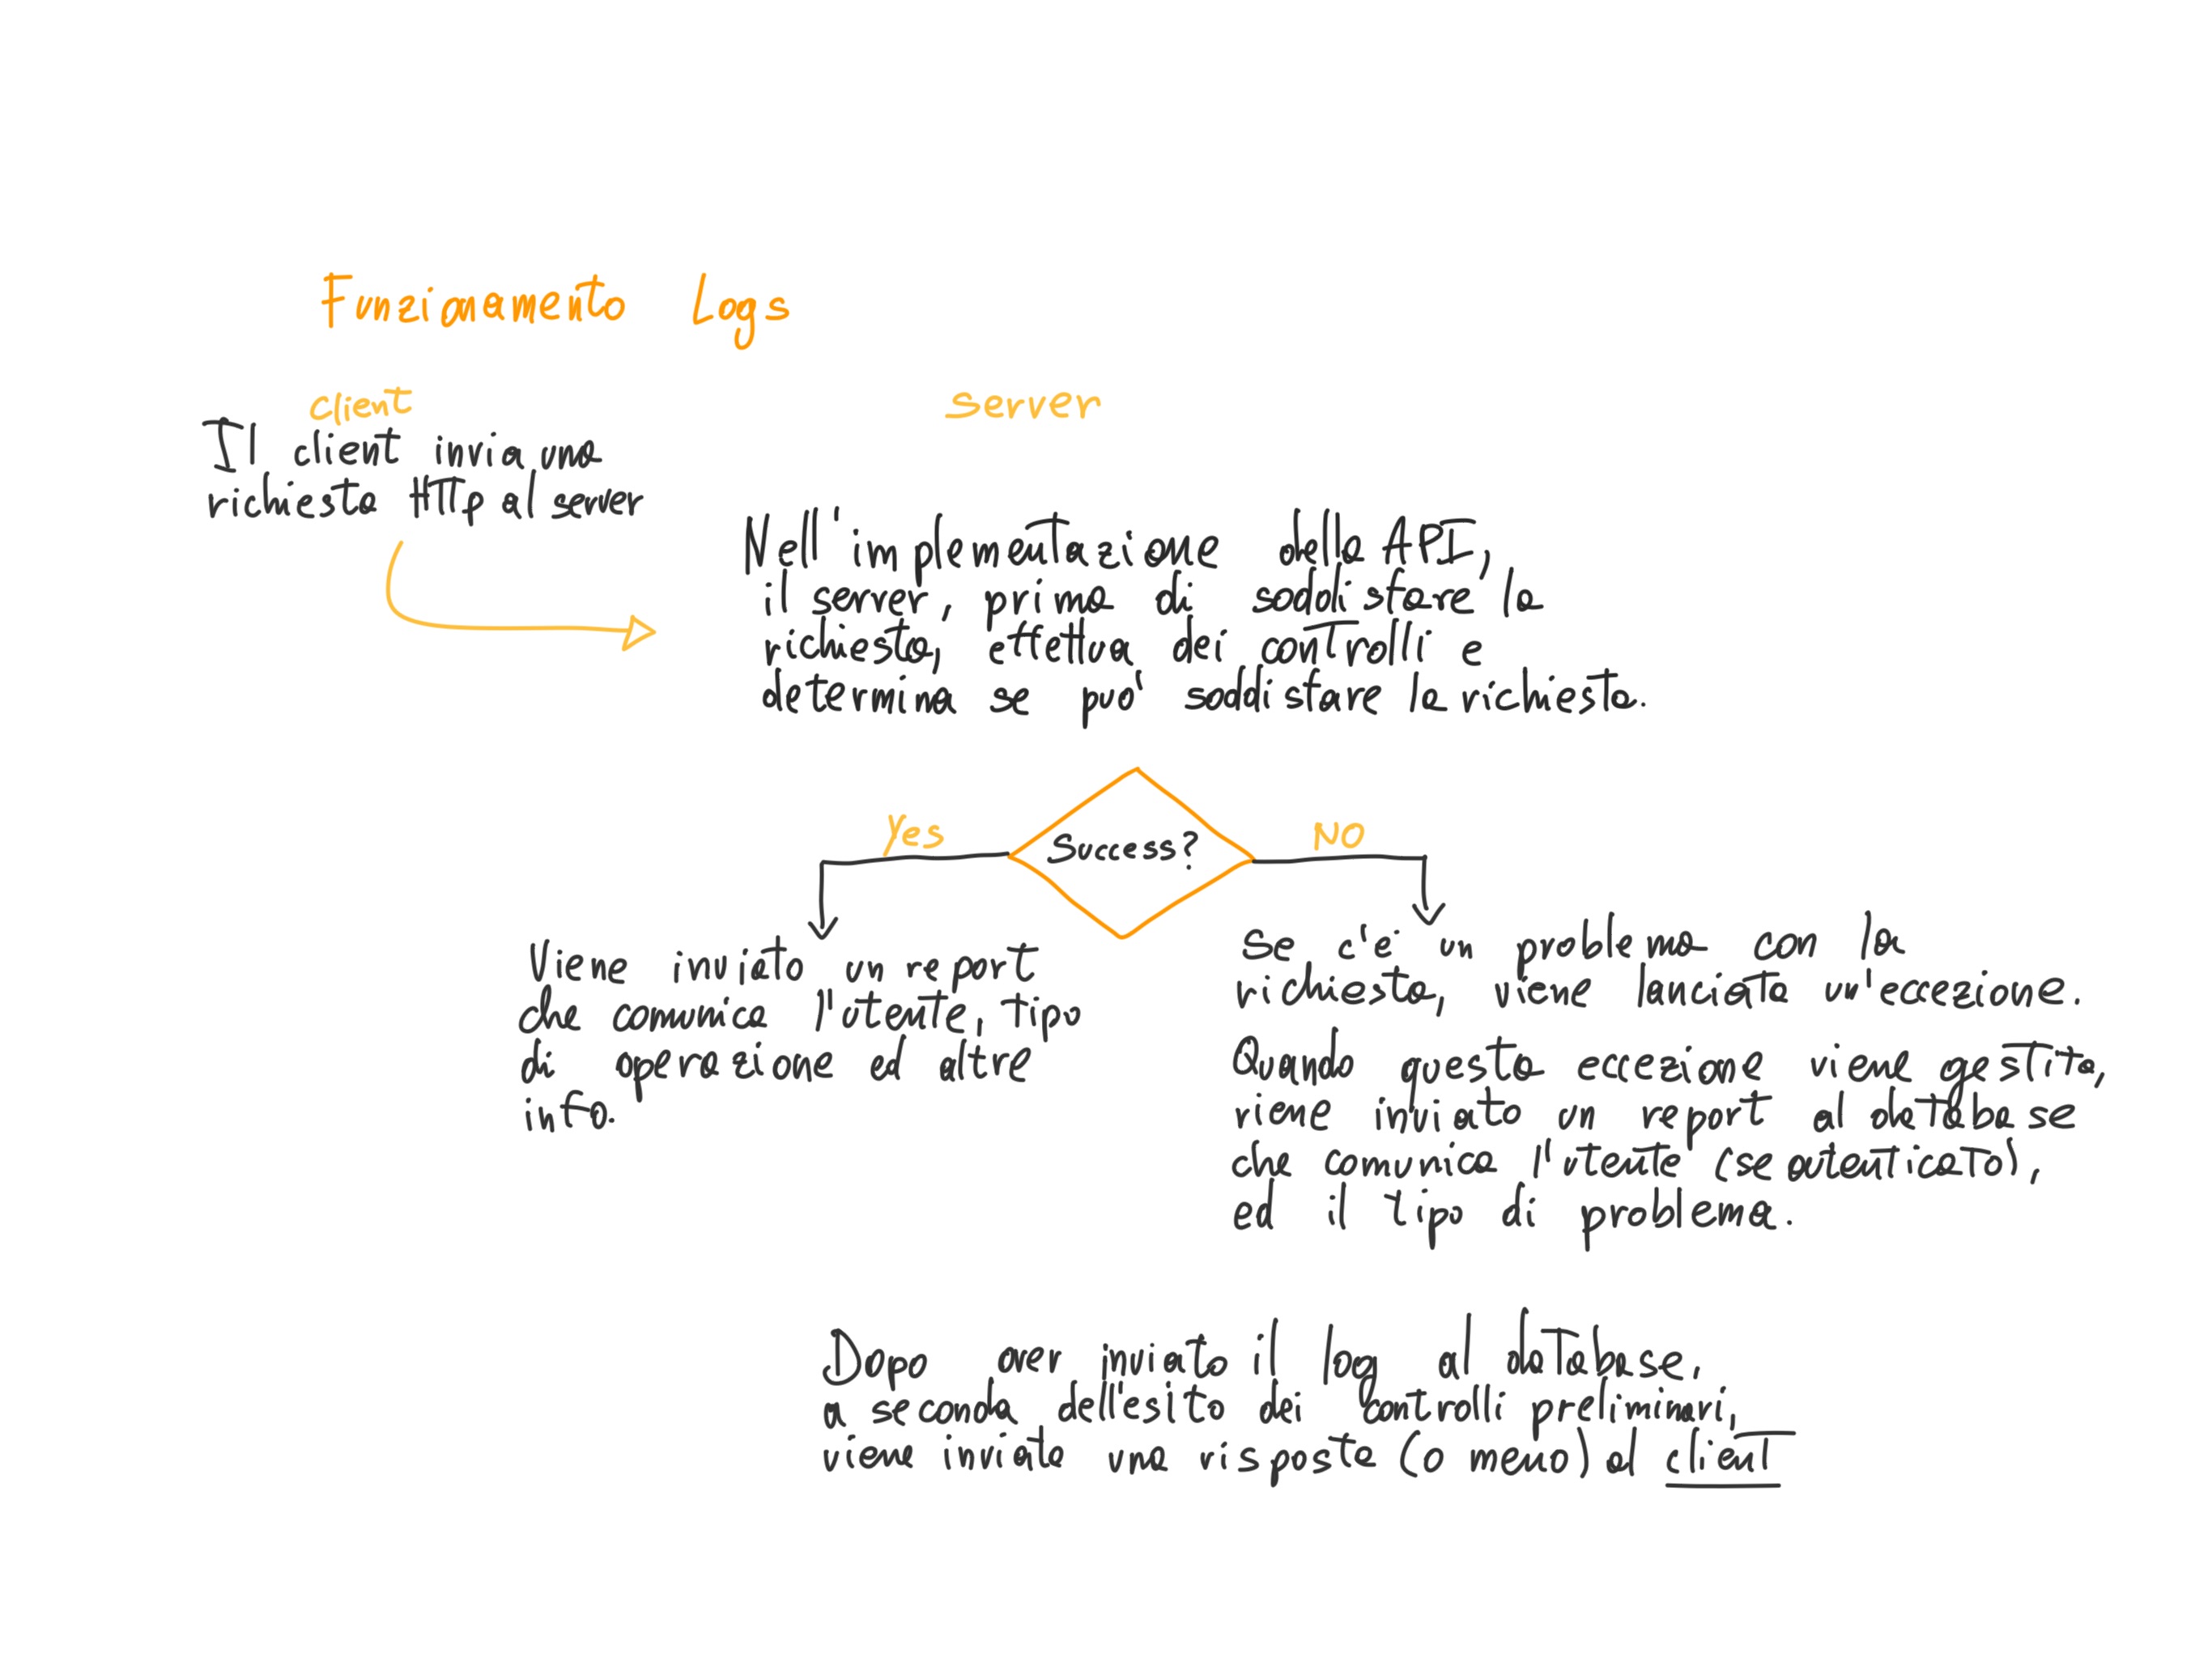 Funzionamento Logs
client
server
Il client invia una
richiesta HTTp al server
Nell'implementazione della API,
il server, prima di soddisfare la
richiesta, effettua dei controlli e
determina se può soddisfare la richiesta.
Yes
Success?
NO
Viene inviato un report
che comunica l'utente, tipo
di operazione ed altre
info.
Se c'è un problema con la
richiesta, viene lanciata un'eccezione.
Quando questa eccezione viene gestita,
viene inviato un report al database
che comunica l'utente (se autenticato),
ed il tipo di problema.
Dopo aver inviato il log al database,
a seconda dell'esito dei controlli preliminari,
viene inviata una risposta (o meno) al client